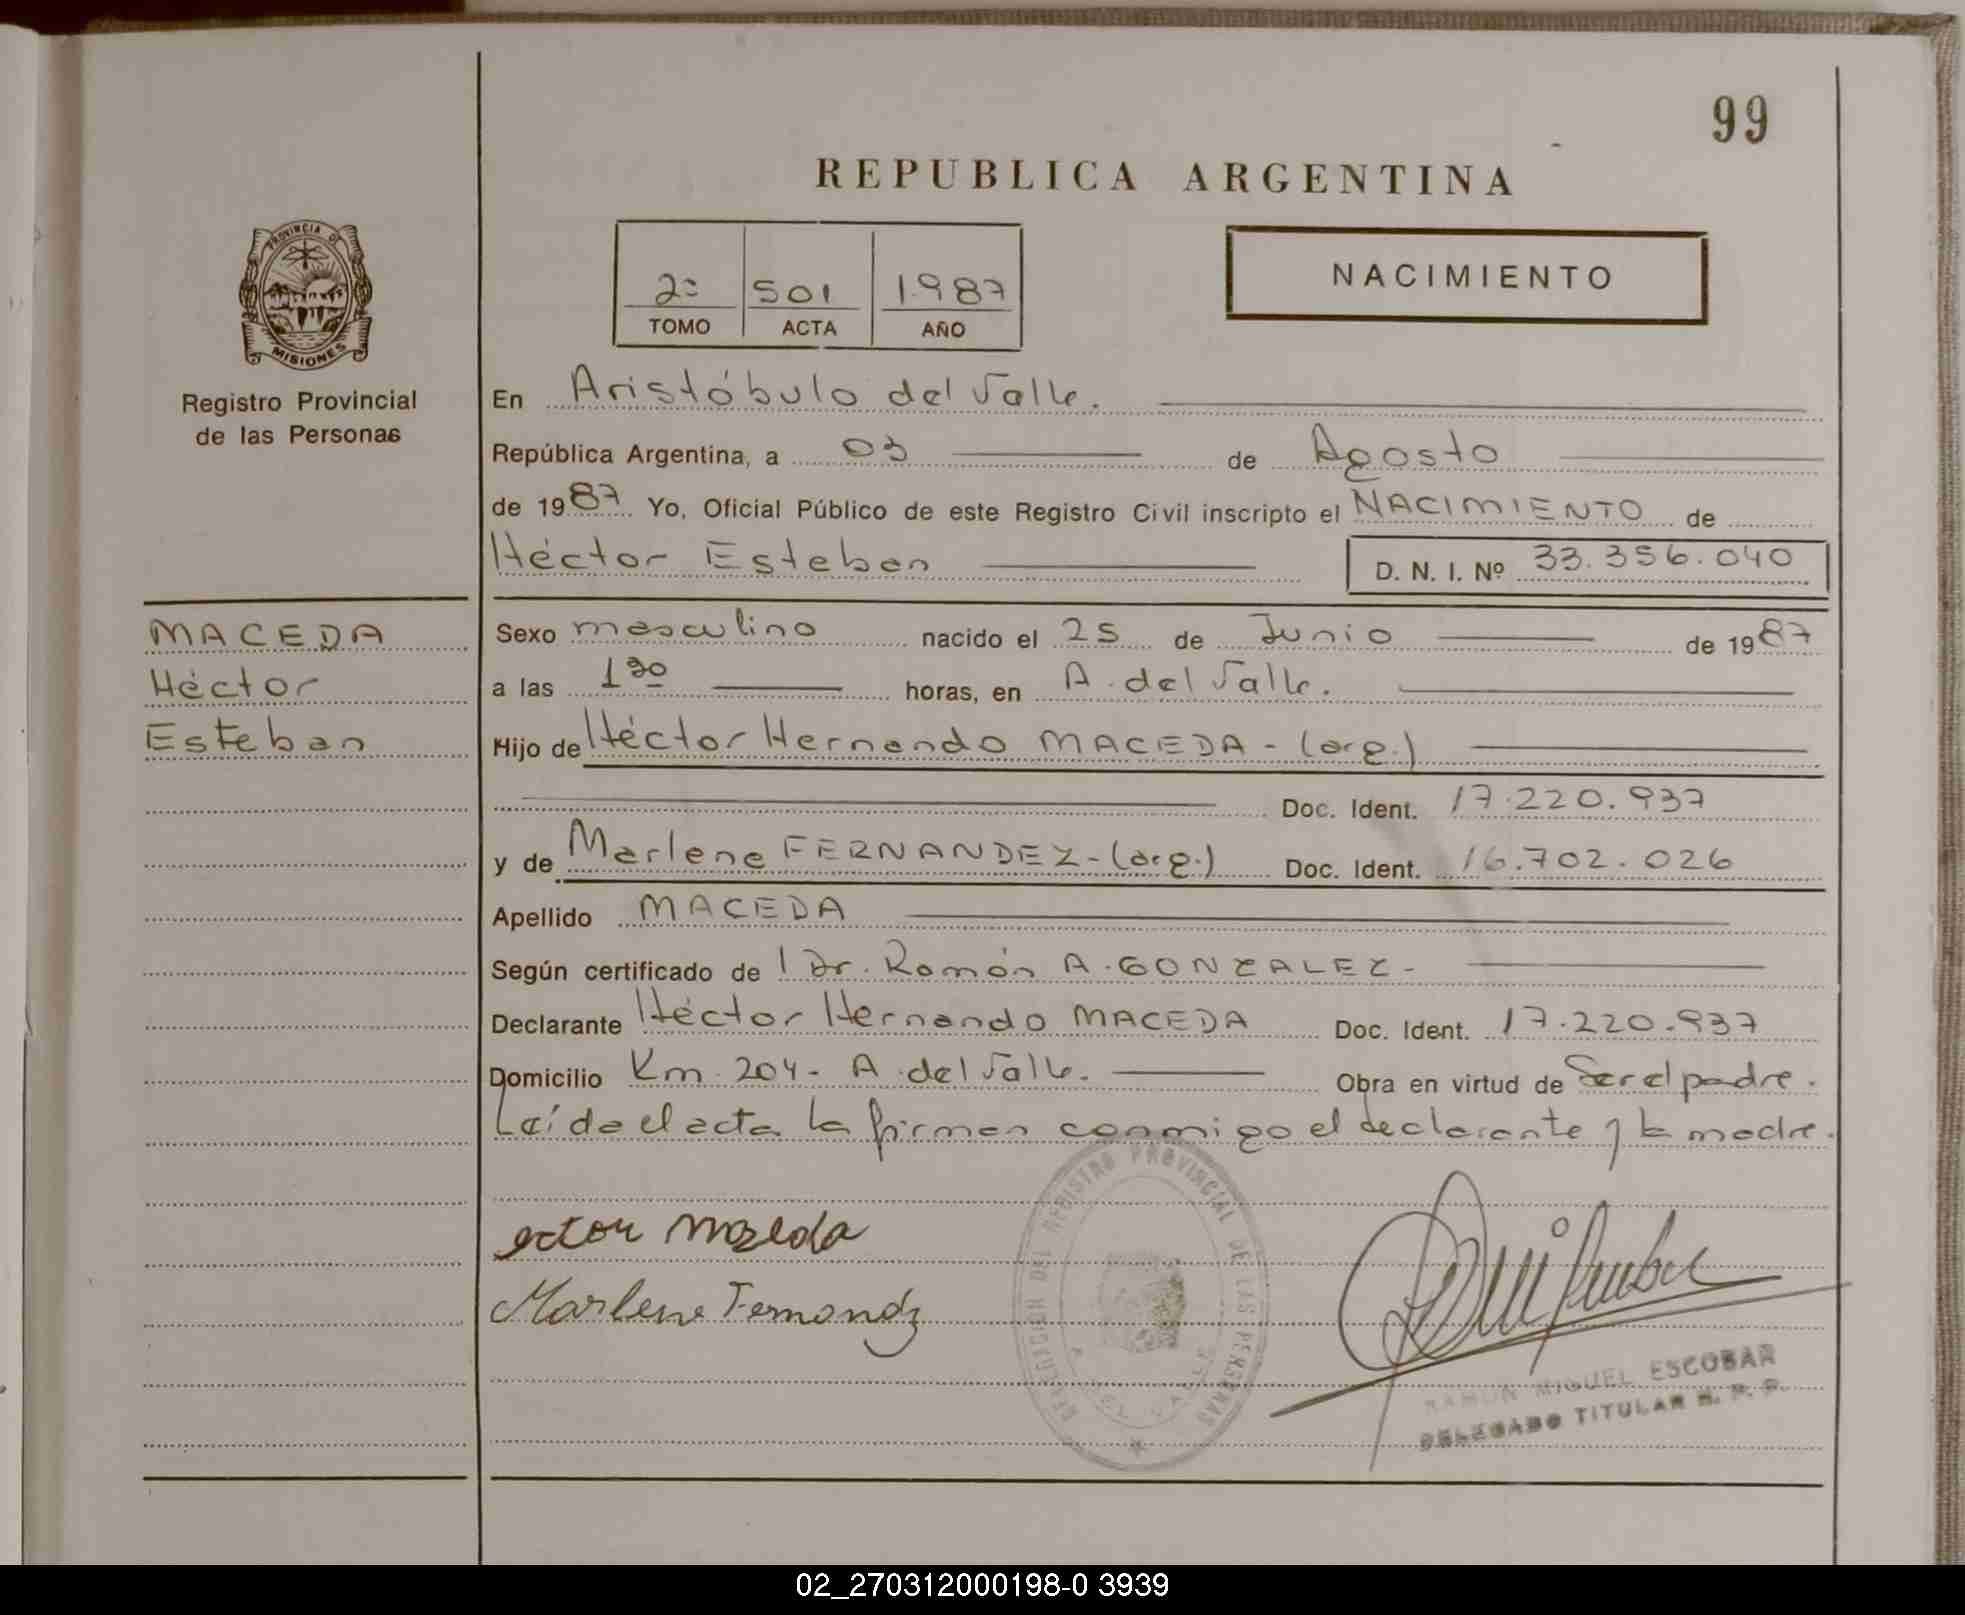 99
REPUBLICA ARGENTINA
PROVINCIA DE
MISIONES
Registro Provincial
de las Personas
2º 501 1987
TOMO ACTA AÑO
NACIMIENTO
En Aristóbulo del Valle.
República Argentina, a 03 de Agosto
de 1987 Yo, Oficial Público de este Registro Civil inscripto el NACIMIENTO de
Héctor Esteban D. N. I. Nº 33.356.040
MACEDA
Héctor
Esteban
Sexo masculino nacido el 25 de Junio de 1987
a las 1 30 horas, en A. del Valle.
Hijo de Héctor Hernando MACEDA - (arg.)
Doc. Ident. 17.220.937
y de Marlene FERNANDEZ - (arg.) Doc. Ident. 16.702.026
Apellido MACEDA
Según certificado de l Dr. Ramón A. GONZALEZ -
Declarante Héctor Hernando MACEDA Doc. Ident. 17.220.937
Domicilio Km. 204 - A. del Valle. Obra en virtud de Ser el padre.
Leída el acta la firman conmigo el declarante y la madre.
ector maseda
Marlene Fernandz
DELEGACION DEL REGISTRO PROVINCIAL DE LAS PERSONAS
A. DEL VALLE
RAMON MIGUEL ESCOBAR
DELEGADO TITULAR R. P. P.
02_270312000198-0 3939